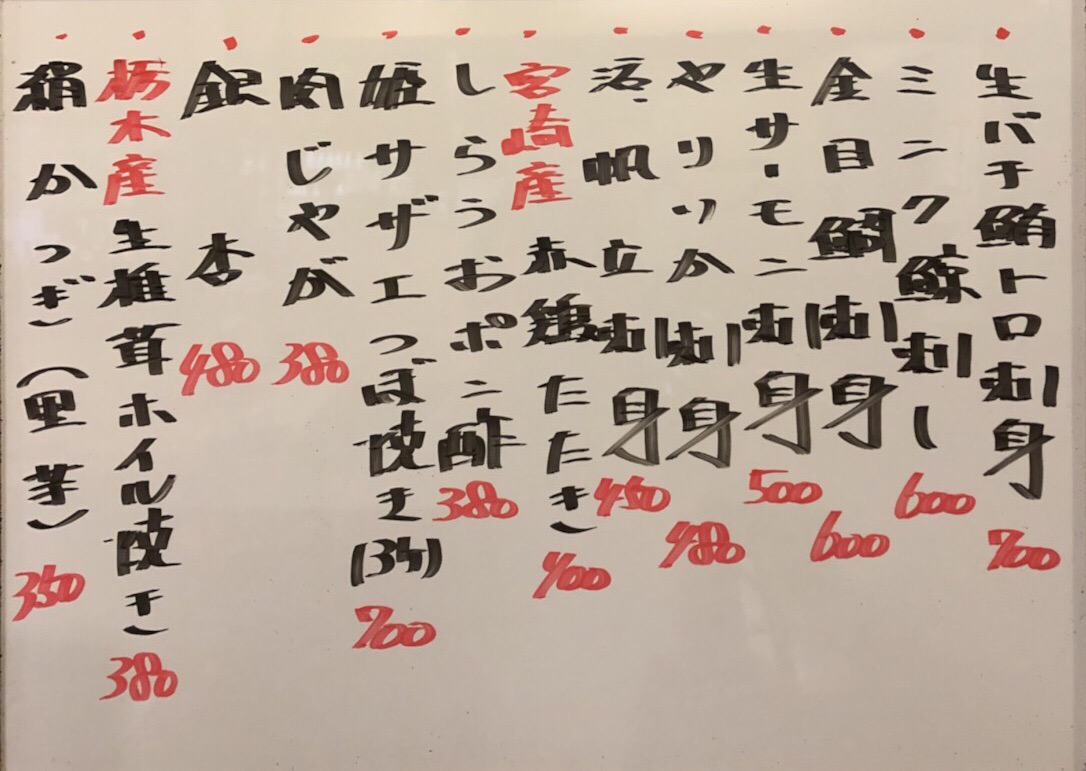 生バチ鮪トロ刺身 700
ミンク鯨刺し 600
金目鯛刺身 600
生サーモン刺身 500
やりいか刺身 480
活帆立刺身 450
宮崎産赤鶏たたき 400
しらうおポン酢 380
姫サザエつぼ焼き(3ケ) 700
肉じゃが 380
銀杏 480
栃木産生椎茸ホイル焼き 380
絹かつぎ(里芋) 350